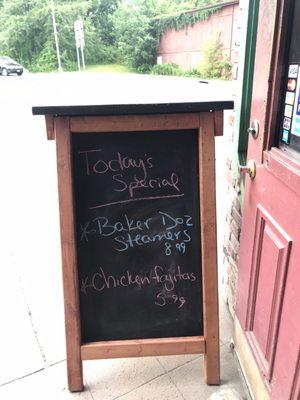 Today's
Special
x Baker Doz
Steamers
8.99
x Chicken fajitas
5.99